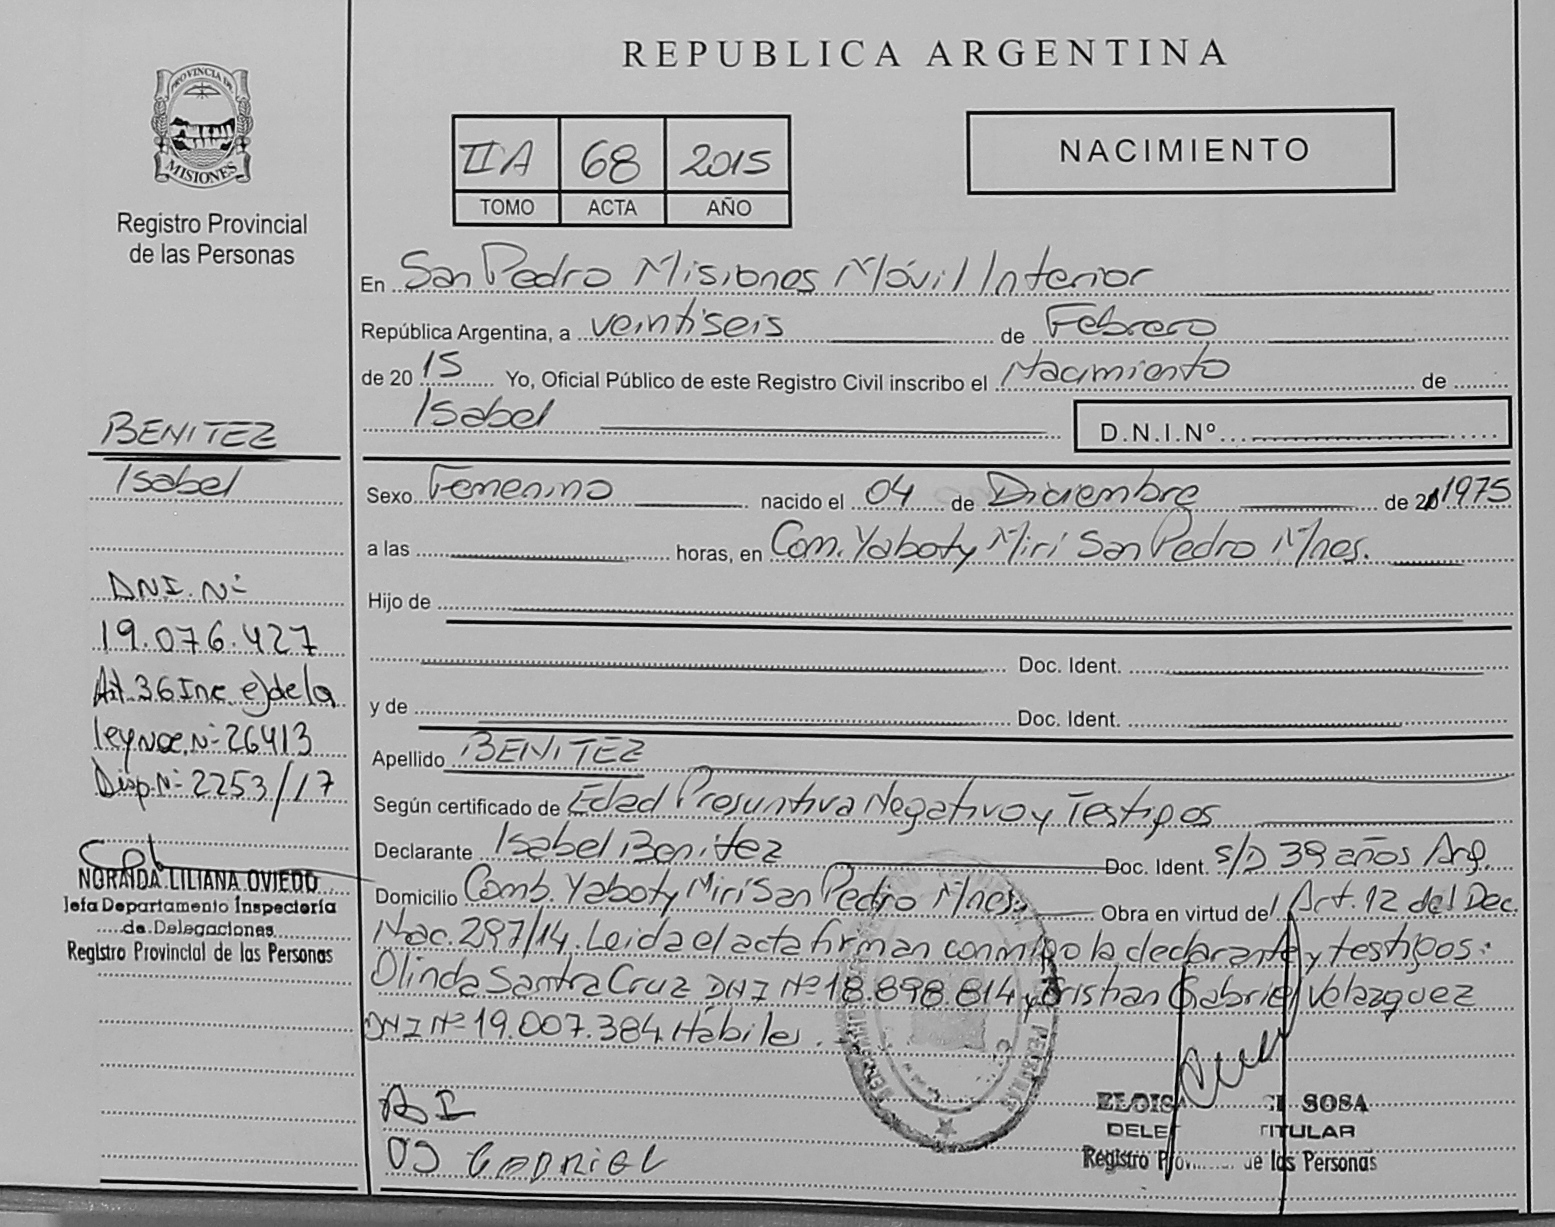 PROVINCIA DE
MISIONES
Registro Provincial
de las Personas
BENITEZ
Isabel
DNI. Nº
19.076.427
Art. 36 Inc. e) de la
ley Nac. Nº 26413
Disp. Nº 2253/17
NORAIDA LILIANA OVIEDO
Jefa Departamento Inspectoría
de Delegaciones
Registro Provincial de las Personas
REPUBLICA ARGENTINA
II A 68 2015
TOMO ACTA AÑO
NACIMIENTO
En San Pedro Misiones Móvil Interior
República Argentina, a veintiseis de Febrero
de 2015 Yo, Oficial Público de este Registro Civil inscribo el Nacimiento de
Isabel D.N.I.Nº
Sexo Femenino nacido el 04 de Diciembre de 1975
a las horas, en Com. Yaboty Miri San Pedro Mnes.
Hijo de
Doc. Ident.
y de Doc. Ident.
Apellido BENITEZ
Según certificado de Edad Presuntiva Negativo y Testigos
Declarante Isabel Benitez Doc. Ident. s/D 39 años Arg.
Domicilio Comb. Yaboty Miri San Pedro Mnes. Obra en virtud del Art. 12 del Dec.
Nac. 297/14. Leida el acta firman conmigo la declarante y testigos:
Olinda Santa Cruz DNI Nº 18.898.814 y Cristian Gabriel Velazquez
DNI Nº 19.007.384 Hábiles.
SOSA
TITULAR
Registro de las Personas